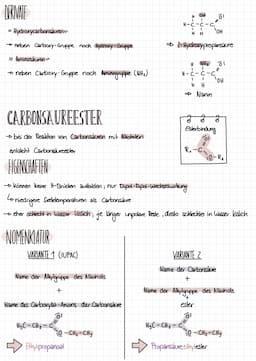 DERIVATE
= Hydroxycarbonsäuren
→ neben Carboxy-Gruppe noch Hydroxy-Gruppe
⇒ 2-Hydroxypropansäure
= Aminosäuren
→ neben Carboxy-Gruppe noch Aminogruppe (NH₂)
⇒ Name
CARBONSÄUREESTER
→ bei der Reaktion von Carbonsäuren mit Alkoholen
entsteht Carbonsäureester
Esterbindung
R₁ - C
O - R₂
EIGENSCHAFTEN
→ können keine H-Brücken ausbilden, nur Dipol-Dipol-Wechselwirkung
↳ niedrigere Siedetemperaturen als Carbonsäure
→ eher schlecht in Wasser löslich, je länger unpolare Reste, desto schlechter in Wasser löslich
NOMENKLATUR
VARIANTE 1 (IUPAC)
Name der Alkylgruppe des Alkohols
+
Name des Carboxylat-Anions der Carbonsäure
H₃C-CH₂-C
O-CH₂-CH₃
⇒ Ethylpropanoat
VARIANTE 2
Name der Carbonsäure
+
Name der Alkylgruppe des Alkohols
+
ester
H₃C-CH₂-C
O-CH₂-CH₃
⇒ Propansäureethylester